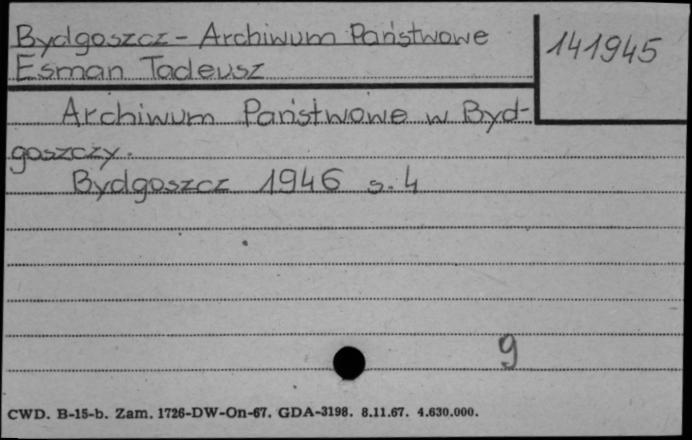 Bydgoszcz - Archiwum Państwowe
141945
Esman Tadeusz
Archiwum Państwowe w Byd-
goszczy.
Bydgoszcz 1946 s. 4
9
CWD. B-15-b. Zam. 1726-DW-On-67. GDA-3198. 8.11.67. 4.630.000.